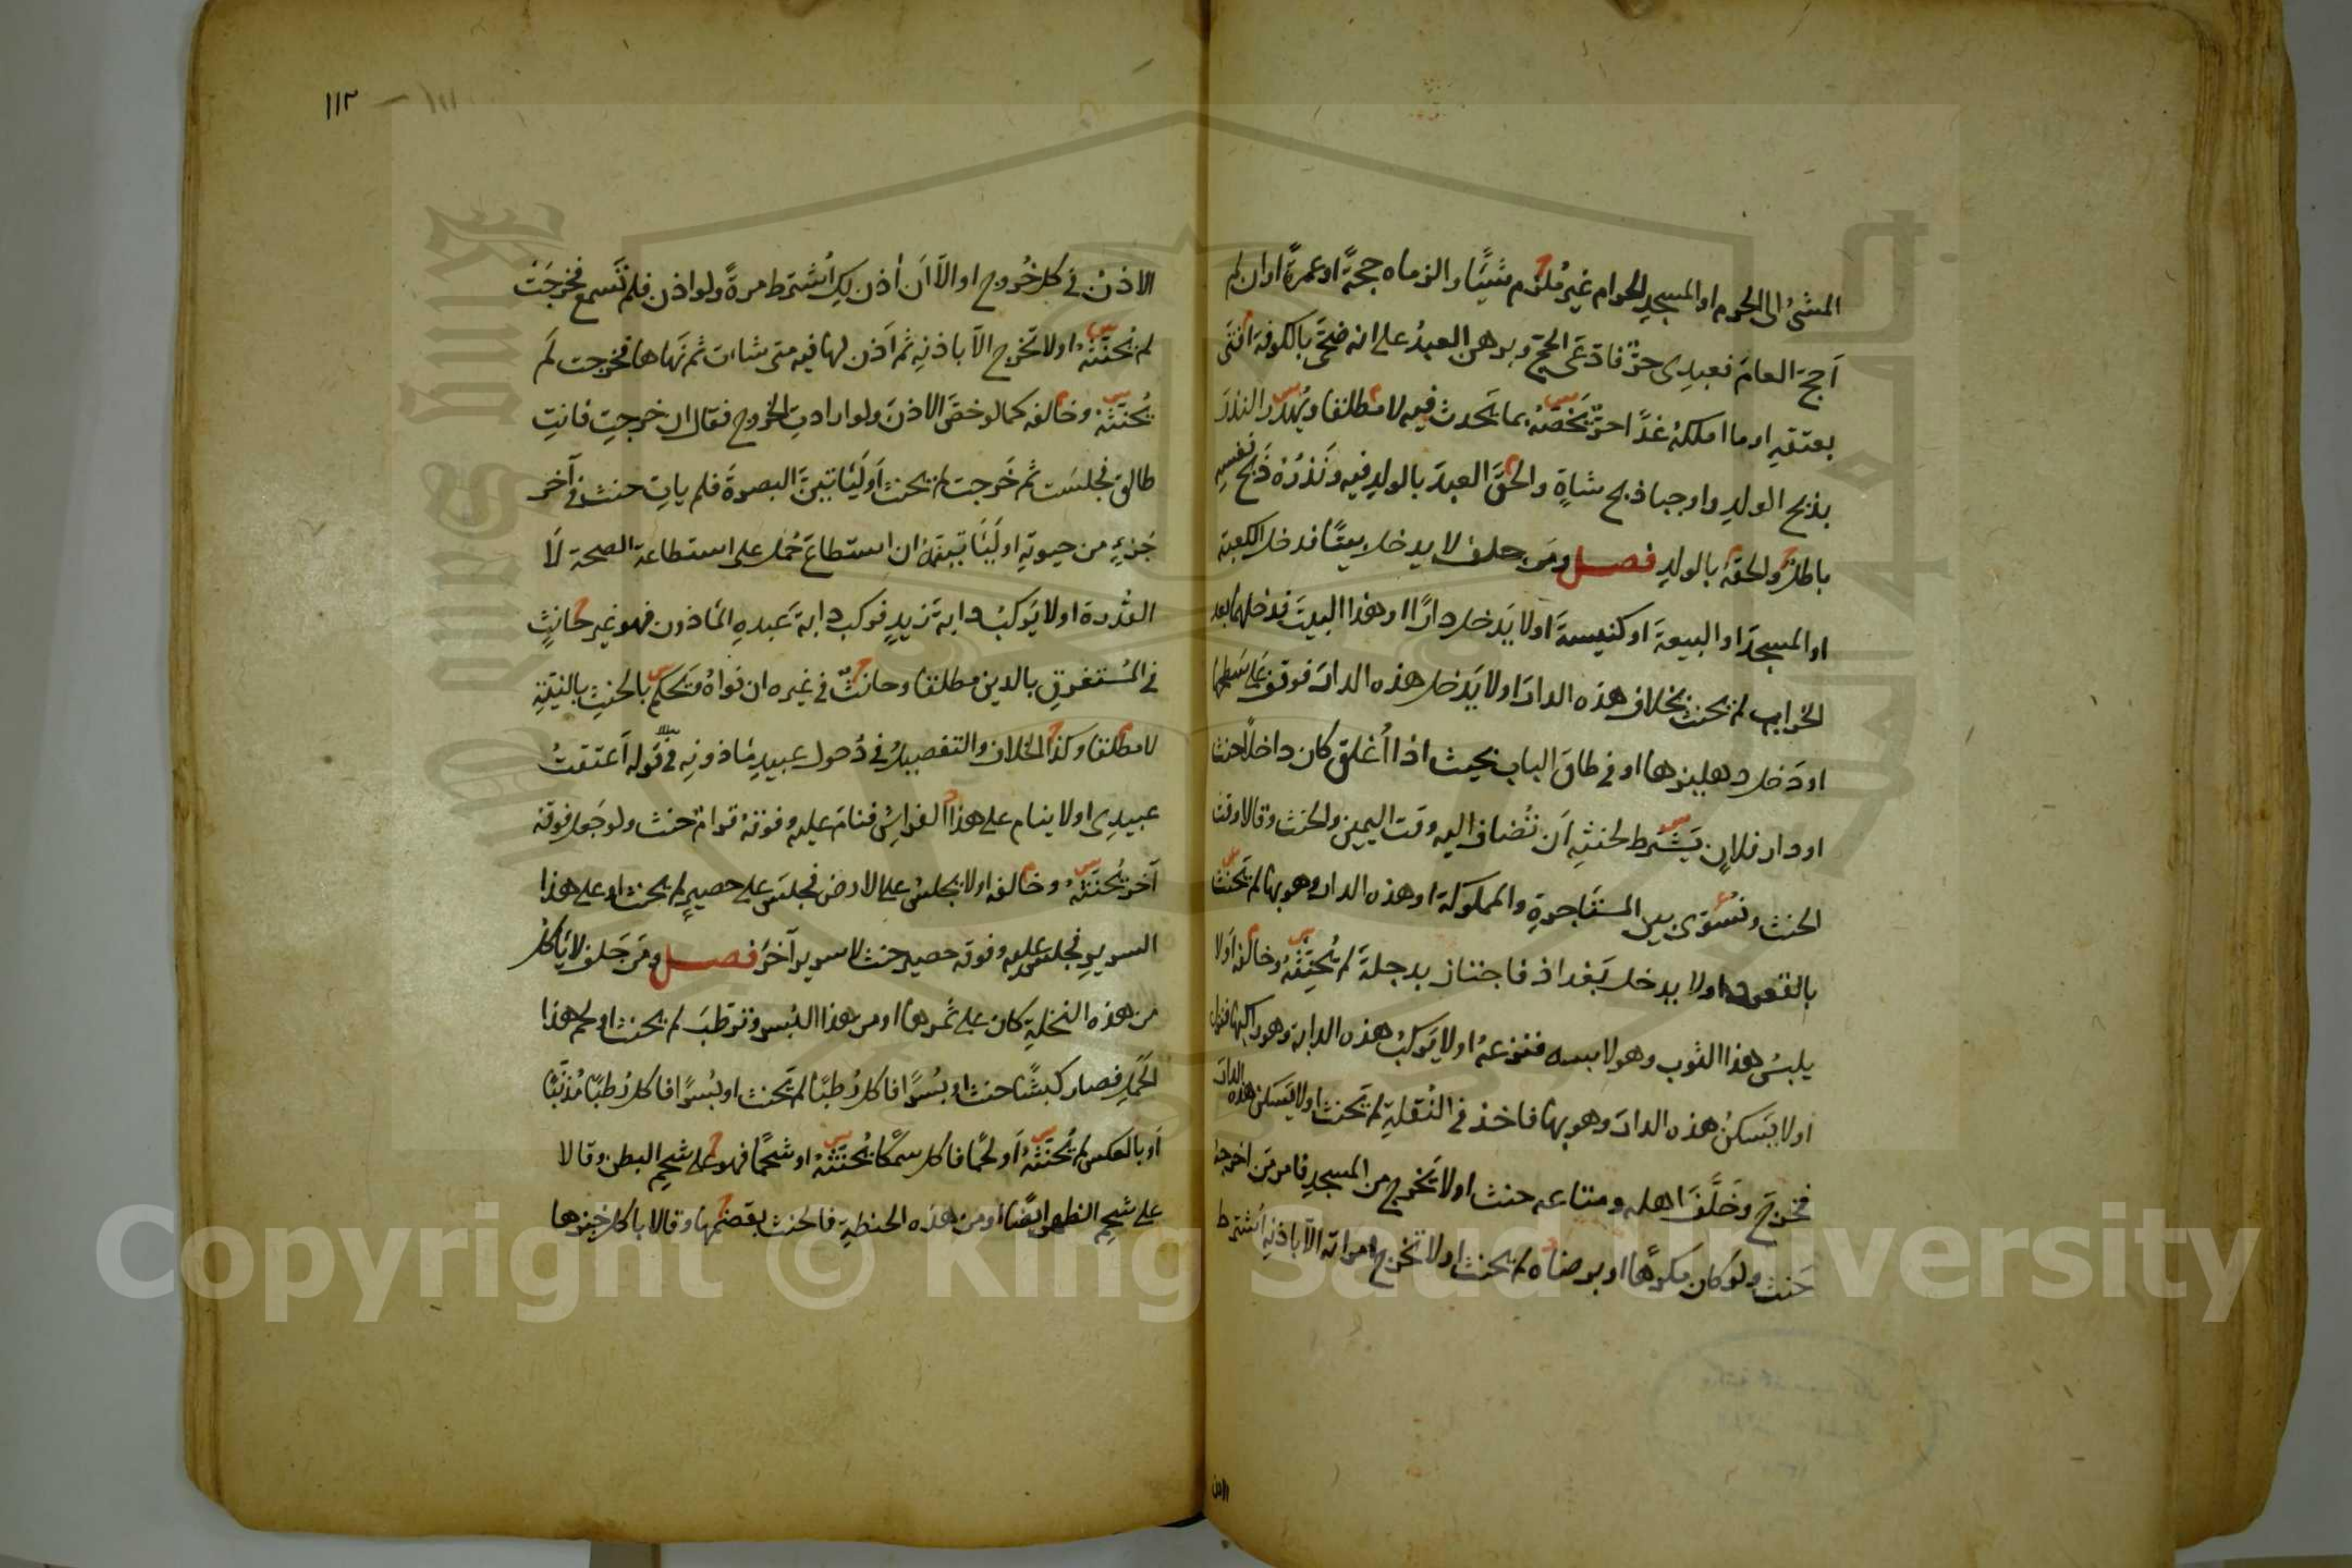 المشىُ الى الحرم او المسجدِ الحرام غيرُ مُلزِم شيئًا والزماه حجةً او عمرةً او ان لم
اَحج العامَ فعبدِى حرٌّ فادّعَى الحجّ وبرهن العبدُ على انه ضحَّى بالكوفة افتَى
بعتقهِ او ما املكهُ غدًا حرٌّ يَخصّهُ بما يَحدث فيه لا مطلقا ويُهدر النذرَ
بذبح الولدِ واوجبا ذبح شاةٍ والحقَ العبدَ بالولدِ فيه ونَذرُهُ ذَبح نفسِهِ
باطلٌ والحقهُ بالولدِ فصل ومَن حلف لا يدخل بيتًا فدخل الكعبة
او المسجدَ او البيعةَ او كنيسةً او لا يَدخل دارًا او هذا البيتَ فدخلهما بعد
الخراب لم يحنث بخلاف هذه الدار او لا يَدخل هذه الدارَ فوقف على سَطحِها
او دَخل دهليزها او في طاق الباب بحيث اذا اُغلق كان داخلًا حنث
او دار فلانٍ يَشترط لحنثِهِ اَن تُضاف اليه وقت اليمين والحنث وقالا وقت
الحنث ونُسَوّى بين المستَاجرةِ والمملوكة او هذه الدار وهو بها لم يَحنث
بالقعود او لا يدخل بَغداذ فاجتاز بدجلةَ لم يُحنِثهُ وخالفه او لا
يلبسُ هذا الثوب وهو لابسه فنزعهُ او لا يَركبُ هذه الدابة وهو راكبها فنزل
او لا يَسكنُ هذه الدارَ وهو بها فاخذ في النُقلةِ لم يَحنث او لا يَسكن هذه الدارَ
فخرَجَ وخَلَّفَ اهله ومتاعه حنث او لا يَخرج من المسجدِ فامر مَن اخرجه
حَنث ولو كان مكرهًا او برضاه لم يحنث او لا تَخرج امراته الاّ باذنِهِ اُشترط
الاذن
١١٢ ـ ١١١
الاذنُ في كل خُروج او الاّ اَن اٰذن لكِ اُشترط مرةً ولو اذن فلم تَسمع فخرجَتْ
لم يُحنّثهُ او لا تَخرج الاّ باذنِهِ ثم اَذن لها فيه متى شات ثم نَهاها فخرجت لَم
يُحنثهُ وخالفه كمالو خصّ الاذنَ ولو ارادتِ الخروج فقال ان خرجتِ فانتِ
طالق فجلسَت ثم خَرجت لم يحنث اَو لَيَاتِيَنّ البصرةَ فلم ياتِ حنث في آخر
جُزءٍ من حيوتِهِ او لَيَاتِيَنّهُ ان استطاعَ حُمل على استطاعة الصحة لاَ
القُدرة او لا يَركبُ دابة زيدٍ فركب دابة عَبدهِ المَاذون فهو غير حانثٍ
في المُستغرقِ بالدين مطلقا وحانثٌ في غيره ان نَواهُ ويَحكم بالحنثِ بالنيّةِ
لا مطلقا وكذا الخلاف والتفصيلُ في دُخول عبيدِ مَاذونِه في قوله اَعتقتُ
عبيدِى او لا ينام على هذا الفراشِ فنامَ عليه وفوقهُ قرامٌ حنث ولو جَعل فوقه
آخر يُحنّثهُ وخالفه او لا يجلسُ على الارض فجلسَ على حصيرٍ لم يحنث او على هذا
السريرِ فجلس عليه وفوقه حصير حنث لا سرير آخَر فصل ومَن حَلف لا يَاكلُ
من هذه النخلةِ كان على ثمرها او من هذا البُسر فترطبَ لم يحنث او لحم هذا
الحَمَلِ فصار كبشًا حنث او بُسرًا فاكل رُطبًا لم يَحنث او بُسرًا فاكل رُطبًا مُذنّبًا
اَو بالعكس لم يُحنّثهُ اَو لحمًا فاكل سمكًا يُحنّثهُ او شحمًا فهو على شحمِ البطن وقالا
على شحمِ الظهر ايضًا او من هذه الحنطةِ فالحنث بقضمها وقالا باكل خبزها
Copyright © King Saud University